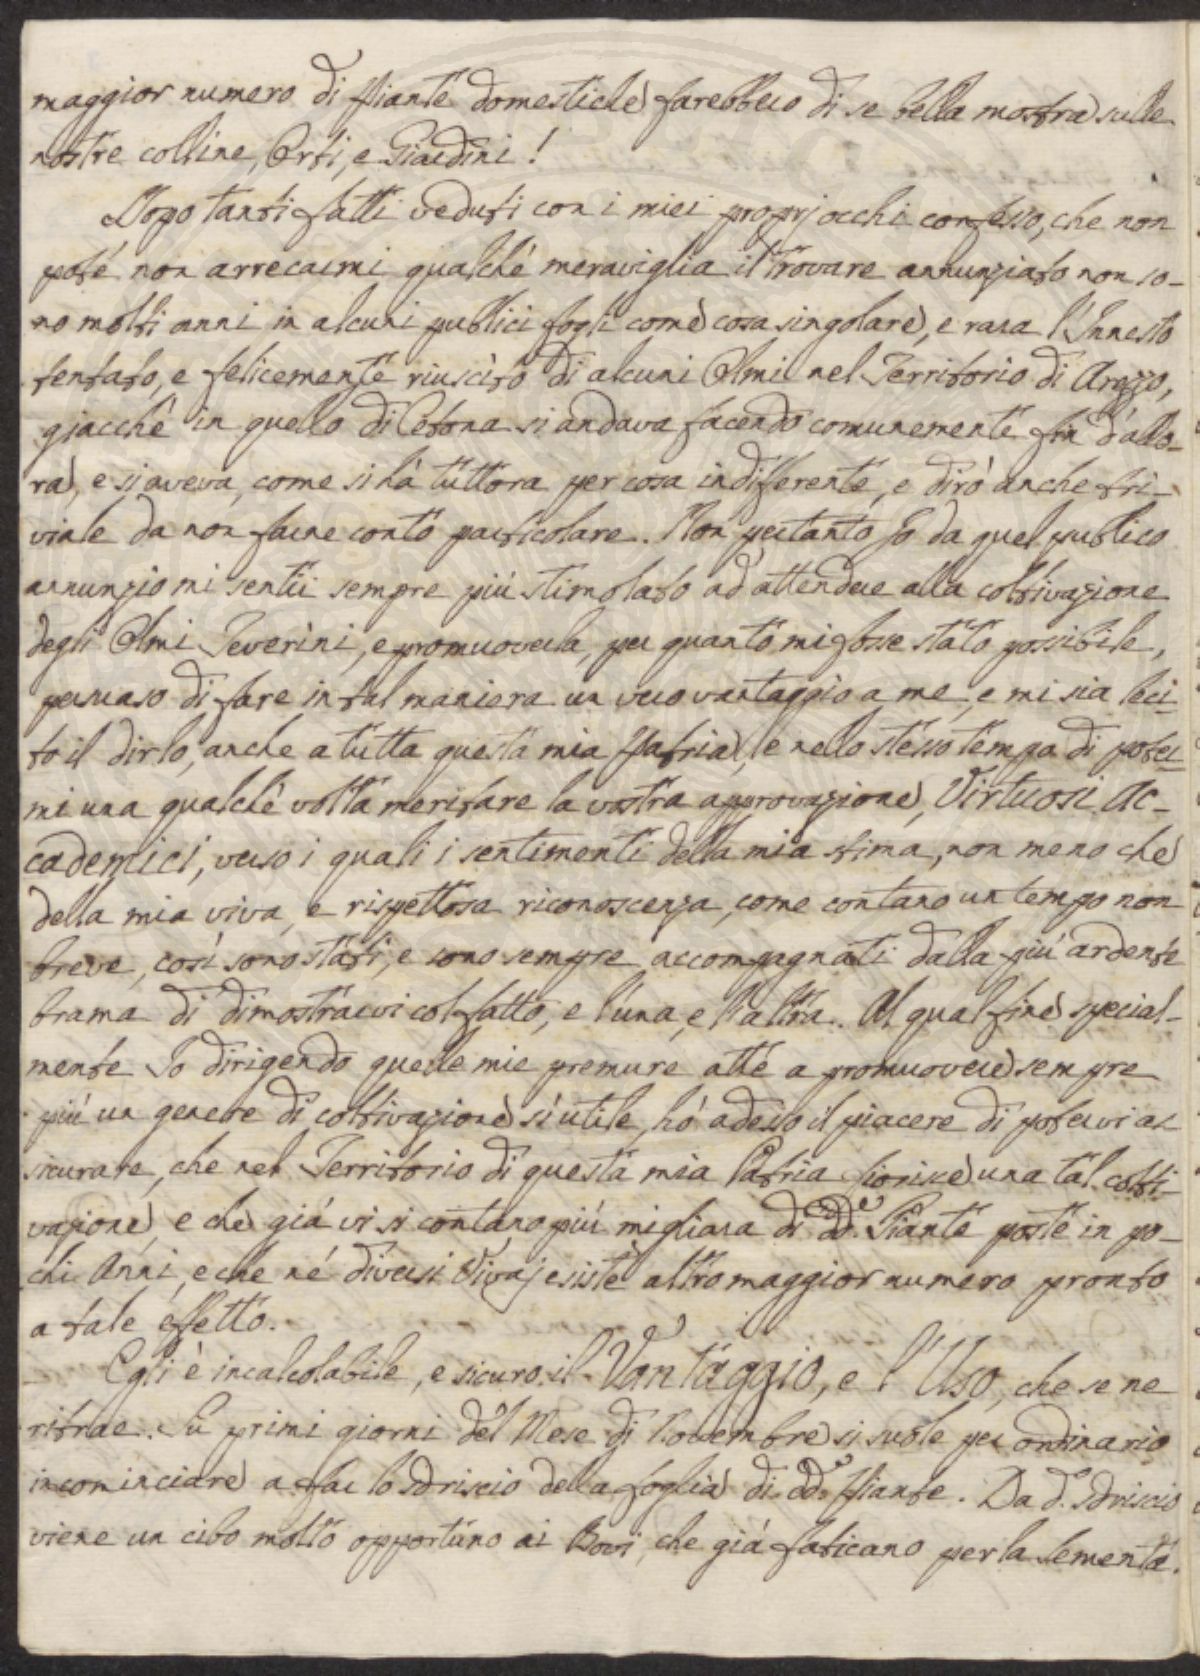 maggior numero di Piante domestiche farebbero di se bella mostra sulle
nostre colline, Orti, e Giardini!
Dopo tanti fatti veduti con i miei proprj occhi confesso, che non
poté non arrecarmi qualche meraviglia il trovare annunziato non so-
no molti anni in alcuni publici fogli come cosa singolare, e rara l'Innesto
tentato, e felicemente riuscito di alcuni Olmi nel Territorio di Arezzo,
giacchè in quello di Cetona si andava facendo comunemente fin d'allo-
ra, e si aveva, come si hà tuttora per cosa indifferente, e dirò anche tri-
viale da non farne conto particolare. Non pertanto Io da quel publico
annunzio mi sentii sempre più stimolato ad attendere alla coltivazione
degli Olmi Teverini, e promuoverla, per quanto mi fosse stato possibile,
persuaso di fare in tal maniera un vero vantaggio a me, e mi sia leci-
to il dirlo, anche a tutta questa mia Patria, e nello stesso tempo di poter-
mi una qualche volta meritare la vostra approvazione, Virtuosi Ac-
cademici, verso i quali i sentimenti della mia stima, non meno che
della mia viva, e rispettosa riconoscenza, come contano un tempo non
breve, così sono stati, e sono sempre accompagnati dalla più ardente
brama di dimostrarvi col fatto, e l'una, e l'altra. Al qual fine special-
mente Io dirigendo quelle mie premure atte a promuovere sempre
più un genere di coltivazione sì utile, hò adesso il piacere di potervi as
sicurare, che nel Territorio di questa mia Patria fiorisce una tal colti-
vazione, e che già vi si contano più migliara di dd.e Piante poste in po-
chi Anni, e che né diversi Vivaj esiste altro maggior numero pronto
a tale effetto.
Egli è incalcolabile, e sicuro il Vantaggio, e l'Uso, che se ne
ritrae. Sù primi giorni del Mese di Novembre si suole per ordinario
incominciare a far lo sdriscio della foglia di dd.e Piante. Da d.o sdriscio
viene un cibo molto opportuno ai Bovi, che già faticano per la sementa.